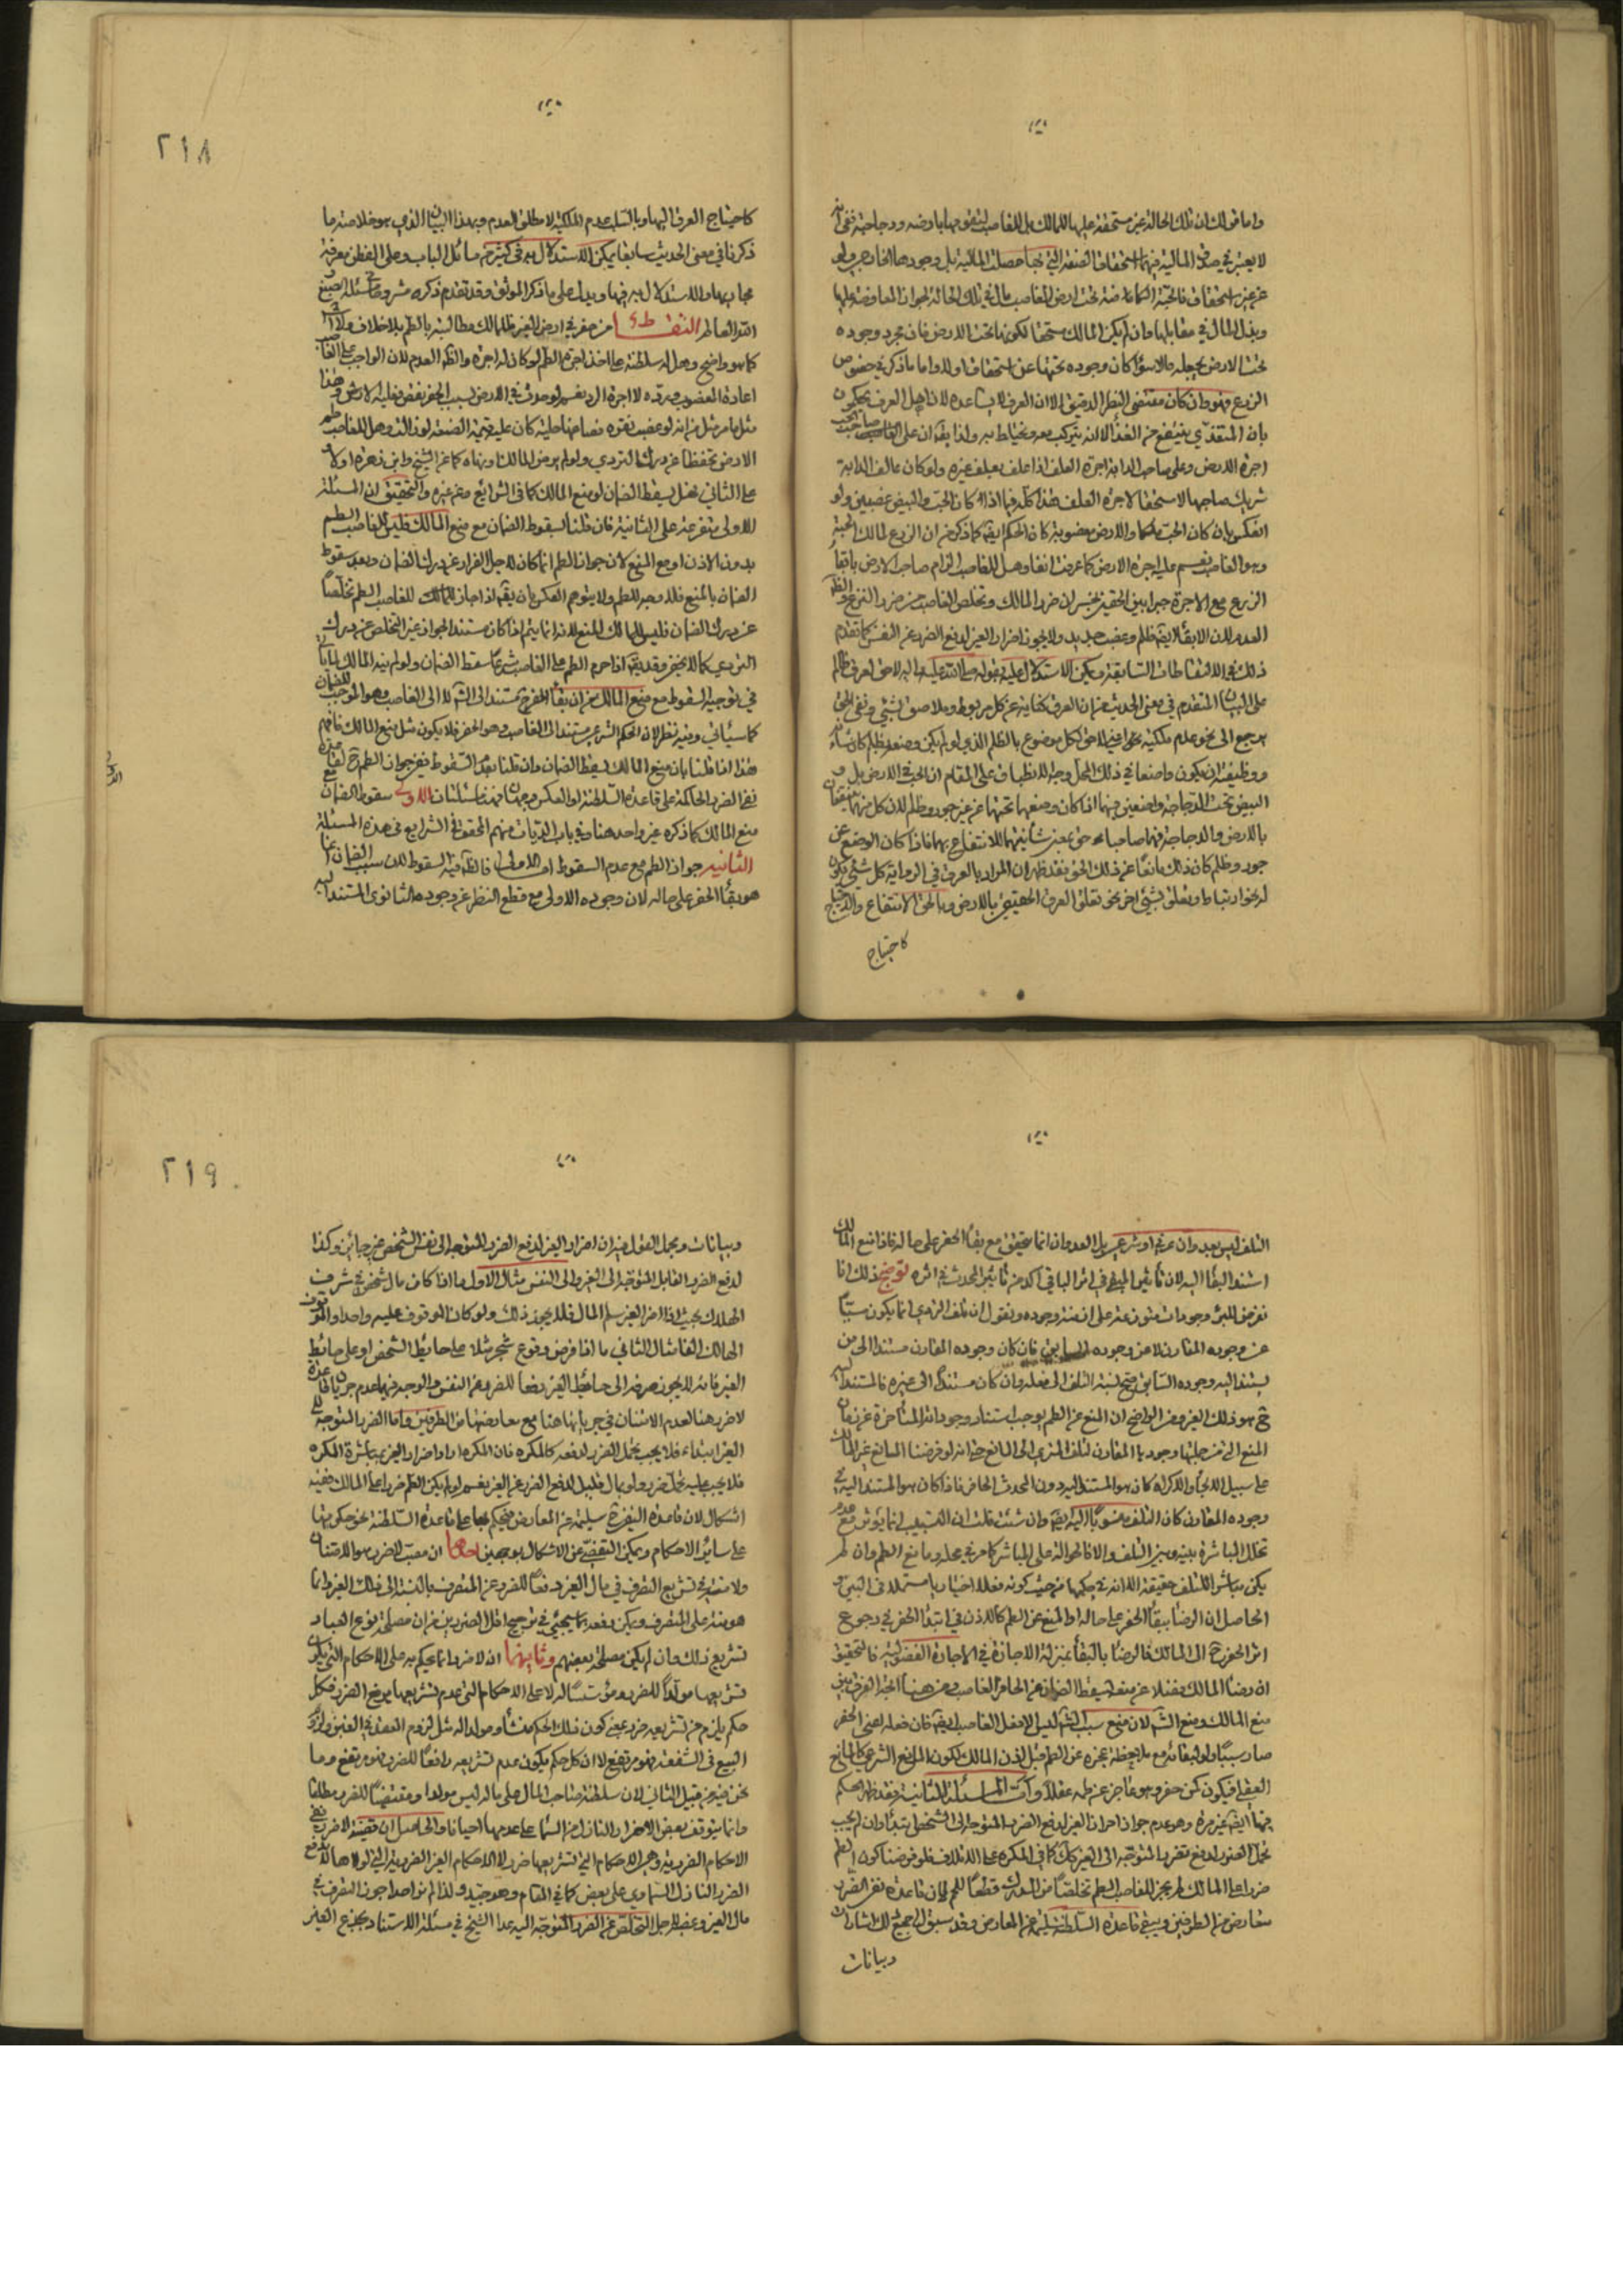 واما قولك ان تلك الحالة غير مستحقة عليها للمالك بل للغاصب لتقومها بارضه ودجاجته ففيه انه
لا يعتبر في صدق المالية فيهما استحقاق الصفة التي بها حصلت المالية بل وجودها الخارجي ولو
عن غير استحقاق فالحبة الكائنة تحت ارض الغاصب مال في تلك الحالة لجواز المعاوضة عليها
وبذل المال في مقابلها وان لم يكن المالك مستحقا لكونها تحت الارض فان مجرد وجوده
تحت الارض يجعله مالا سواء كان وجوده تحتها عن استحقاق اولا واما ما ذكر في خصوص
الزرع فهو وان كان مقتضى النظر الدقيق الا ان العرف لا يساعده لان اهل العرف يحكمون
بان المتغذي ينتفع من الغذاء الا انه يتركب معه ويختلط به ولذا يقال ان على الغاصب صاحب الحب
اجرة الارض وعلى صاحب الدابة اجرة العلف اذا علف بعلف غيره ولو كان عالف الدابة
شريك صاحبها لاستحق الاجرة العلف هذا كله فيما اذا كان الحب والبيض غصبين ولو
انعكس بان كان الحب ملكا والارض مغصوبة كان الحكم ايضا كما ذكر من ان الزرع لمالك الحبة
وهو الغاصب نفسه عليه اجرة الارض كما عرفت انفا وهل للغاصب الزام صاحب الارض بابقاء
الزرع مع الاجرة جمعا بين الحقين بجبران ضرر المالك وتخلص الغاصب من ضرر النزع والظاهر
العدم لان الابقاء ايضا ظلم وغصب جديد ولا يجوز اضرار الغير لدفع الضرر عن النفس كما تقدم
ذلك في الالتقاطات السابقة ويمكن الاستدلال عليه بقوله صلى الله عليه واله لا حق لعرق ظالم
على البيان المتقدم في معنى الحديث من ان العرق كناية عن كل مربوط وملاصق بشيء ونفي الحق
يرجع الى نحو عدم ملكيته نحو البقاء لا حق لكل موضوع بالظلم الذي لو لم يكن وضعه بظلم كان شأنه
ووظيفته ان يكون واضعا في ذلك المحل وجه الانطباق على المقام ان الحب في الارض بل و
البيض تحت الدجاجة واضعين فيهما اذا كان وضعهما تحتها عن غير جور وظلم لان كل منهما متعلقان
بالارض والدجاجة فهما صاحبا حق بمعنى شأنيتهما للانتفاع بهما فاذا كان الوضع عن
جور وظلم كان ذلك مانعا عن ذلك الحق فقد ظهر ان المراد بالعرق في الرواية كل شيء يكون
له نحو ارتباط وتعلق بشيء اخر نحو تعلق العرق الحقيقي بالارض وبالحق الانتفاع والاحتياج
كاحتياج
٢١٨
كاحتياج العرق اليها وبالسلب عدم الملكية لا مطلق العدم وبهذا البيان الذي هو خلاصة ما
ذكرنا في معنى الحديث سابقا يمكن الاستدلال به في كثير من مسائل الباب وعلى الفطن معرفة
مجاريها والاستدلال به فيها ويدل على ما ذكر الموثق وقد تقدم ذكره مشروحا في مسئلة الصبغ و
الله العالم التقاط من حفر في ارض الغير فللمالك مطالبته بالطم بلا خلاف ولا اشكال
كما هو واضح وهل له سلطنة على اخذ اجرة الطم لو كان له اجرة والظاهر العدم لان الواجب على الغاصب
اعادة المغصوب ورده لا اجرة الرد نعم لو حدث في الارض بسبب الحفر نقص فعليه الارش وهذا
مثل ما مر مثل من انه لو غصب نقره فصاغها حلية كان عليه قيمة الصنعة لو ازالت وهل للغاصب طم
الارض تحفظا عن درك التردي ولو لم يرض المالك او ينهاه كما عن الشيخ وابن زهرة اولا و
على الثاني فهل يسقط الضمان لو منع المالك كما في الشرائع وعن غيره والتحقيق ان المسئلة
الاولى متفرعة على الثانية فان قلنا بسقوط الضمان مع منع المالك فليس للغاصب الطم
بدون الاذن او مع المنع لان جواز الطم انما كان لاجل الفرار عن درك الضمان وبعد سقوط
الضمان بالمنع فلا وجه للطم ولا يتوهم العكس بان يقال اذا جاز للمالك للغاصب الطم تخلصا
عن درك الضمان فليس للمالك المنع لانه انما يتم اذا كان مستند الجواز غير التخلص عن درك
التردي كما لا يخفى وقد يقال اذا حرم الطم على الغاصب شرعا سقط الضمان ولو لم ينه المالك لما يأتي
في توجيه السقوط مع منع المالك من ان بقاء الحفر مستند الى الشارع لا الى الغاصب وهو الموجب للضمان
كما سيأتي وفيه نظر لان الحكم الشرعي مستند الى الغاصب وهو الحفر فلا يكون مثل منع المالك فافهم
هذا اذا قلنا بان منع المالك يسقط الضمان وان قلنا بعدم السقوط ففي جواز الطم ح لقاعدة
نفي الضرر الحاكمة على قاعدة السلطنة او العكس وجهان فهنا مسئلتان الاولى سقوط الضمان مع
منع المالك كما ذكره غير واحد هنا وفي باب الديات منهم المحقق في الشرايع في هذه المسئلة
الثانية جواز الطم مع عدم السقوط اما الاولى فالظاهر فيه السقوط لان سبب الضمان انما
هو بقاء الحفر على حاله لان وجوده الاولى مع قطع النظر عن وجوده الثانوي المستند اليه
التلف ليس بعدوان عرفي او شرعي بل العدوان انما يتحقق مع بقاء الحفر على حاله فاذا منع المالك
استند البقاء اليه لان تأثير المبقي في اثر الباقي اكد من تأثير المحدث في اثره توضيح ذلك انا
نفرض للبئر وجودات متنوعة على ازمنة وجوده ونقول ان تلف التردي انما يكون سببا
عن وجوده المقارن لا عن وجوده السابق فان كان وجوده المقارن مستندا الى من
يستند اليه وجوده السابق صح نسبة التلف الى فعله وان كان مستندا الى غيره فالمستند اليه
ح هو ذلك الغير ومن الواضح ان المنع عن الطم يوجب استناد وجوداته المتأخرة عن زمان
المنع التي من جملتها وجودها المقارن لتلف المتردي الى المانع حتى انه لو فرضنا المانع غير المالك
على سبيل الالجاء والاكراه كان هو المستند اليه دون المحدث الحافر فاذا كان هو المستند اليه في
وجوده المقارن كان التلف منسوبا اليه ايضا وان شئت قلت ان التسبيب انما يؤثر مع عدم
تخلل المباشرة بينه وبين التلف والا فالحوالة على المباشر كما مر في محله ومانع الطم وان لم
يكن مباشرا للتلف حقيقة الا انه في حكمها من حيث كونه فعلا اختياريا مستقلا في التبين و
الحاصل ان الرضا ببقاء الحفر على حاله او المنع عن الطم كالاذن في ابتداء الحفر في رجوع
اثر الحفر ح الى المالك فالرضا بالبقاء بمنزلة الاجازة في الاجازة الفضولية فالتحقيق
ان رضا المالك فضلا عن منعه يسقط الضمان عن الحافر الغاصب ومن هنا اتجه الفرق بين
منع المالك ومنع الشارع لان منع سبب الشارع ليس الا فعل الغاصب ايضا فان فعله اعني الحفر
صار سببا ولو لبقائه مع ملاحظة عجزه عن الطم قبل اذن المالك لكون المانع الشرعي كالمانع
العقلي فيكون كمن حفر وهو عاجز عن طمه عقلا واما المسئلة الثانية فقد ظهر الحكم
فيها ايضا غير مرة وهو عدم جواز اضرار الغير لدفع الضرر المتوجه الى الشخص ابتداء وان لم يجب
تحمل الضرر لدفع تضرر المتوجه الى الغير كما في المكره على الاتلاف فلو فرضنا كون الطم
ضررا على المالك لم يجز للغاصب الطم تخلصا من الدرك قطعا للعلم بان قاعدة نفي الضرر
متعارض من الطرفين ويبقى قاعدة السلطنة سليمة عن المعارض وقد سبق الى جميع ذلك اشارات
وبيانات
٢١٩
وبيانات ومجمل القول فيه ان اضرار الغير لدفع الضرر المتوجه الى نفس الشخص غير جائز وكذا
لدفع الضرر القابل المتوجه الى الغير والى النفس مثال الاول ما اذا كان مال شخص في شرف
الهلاك بحيث اذا اضر الغير سلم المال فلا يجوز ذلك ولو كان الموقوف عليه واحدا والموقوف
الهالك الفا مثال الثاني ما اذا فرض وقوع شجر مثلا على حائط الشخص او على حائط
الغير فانه لا يجوز صرفه الى حائط الغير دفعا للضرر عن النفس والوجه فيهما عدم جريان قاعدة
لا ضرر هنا لعدم الامتنان في جريانها هنا مع تعارضها من الطرفين واما الضرر المتوجه الى
الغير ابتداء فلا يجب تحمل الضرر لدفعه كالمكره فان المكره اراد اضرار الغير بمباشرة المكره
فلا يجب عليه تحمل ضرر ولو بمال قليل لدفع الضرر عن الغير نعم لو لم يكن الطم ضررا على المالك ففيه
اشكال لان قاعدة النفي ح سليمة عن المعارض فيحكم بها على قاعدة السلطنة نحو حكومتها
على سائر الاحكام ويمكن التفصي عن الاشكال بوجهين احدهما ان معتبر لا ضرر هو الامتنان
ولا منة في تشريع التصرف في مال الغير دفعا للضرر عن المتصرف بالنسبة الى ذلك الغير وانما
هو منة على المتصرف ويمكن دفعه بما سيجيء في ترجيح اقل الضررين من ان مصلحة نوع العباد
تشريع ذلك وان لم يكن مصلحة بعضهم وثانيهما ان لا ضرر انما يحكم به على الاحكام التي يكون
تشريعها مولدا للضرر ومؤسسا له لا على الاحكام التي عدم تشريعها يرفع الضرر فكل
حكم يلزم من تشريعه ضرر بمعنى كون ذلك الحكم منشأ ومولدا له مثل لزوم العقد في الغبن ولزوم
البيع في الشفعة فهو مرتفع لا ان كل حكم يكون عدم تشريعه رافعا للضرر فهو مرتفع وما
نحن فيه من قبيل الثاني لان سلطنة صاحب المال على ماله ليس مولدا ومقتضيا للضرر مطلقا
وانما يتوقف بعض الاضرار النازل من السماء على عدمها احيانا والحاصل ان قضية لا ضرر نفي
الاحكام الضررية وهي الاحكام التي تشريعها ضرر لا الاحكام الغير الضررية التي لولاها لاندفع
الضرر النازل السماوي على بعض كما في المقام وهو جيد ولذا لم نر احدا جوز التصرف في
مال الغير وغصبه لاجل التخلص عن الضرر المتوجه اليه عدا الشيخ في مسئلة الاستناد بجذع الغير